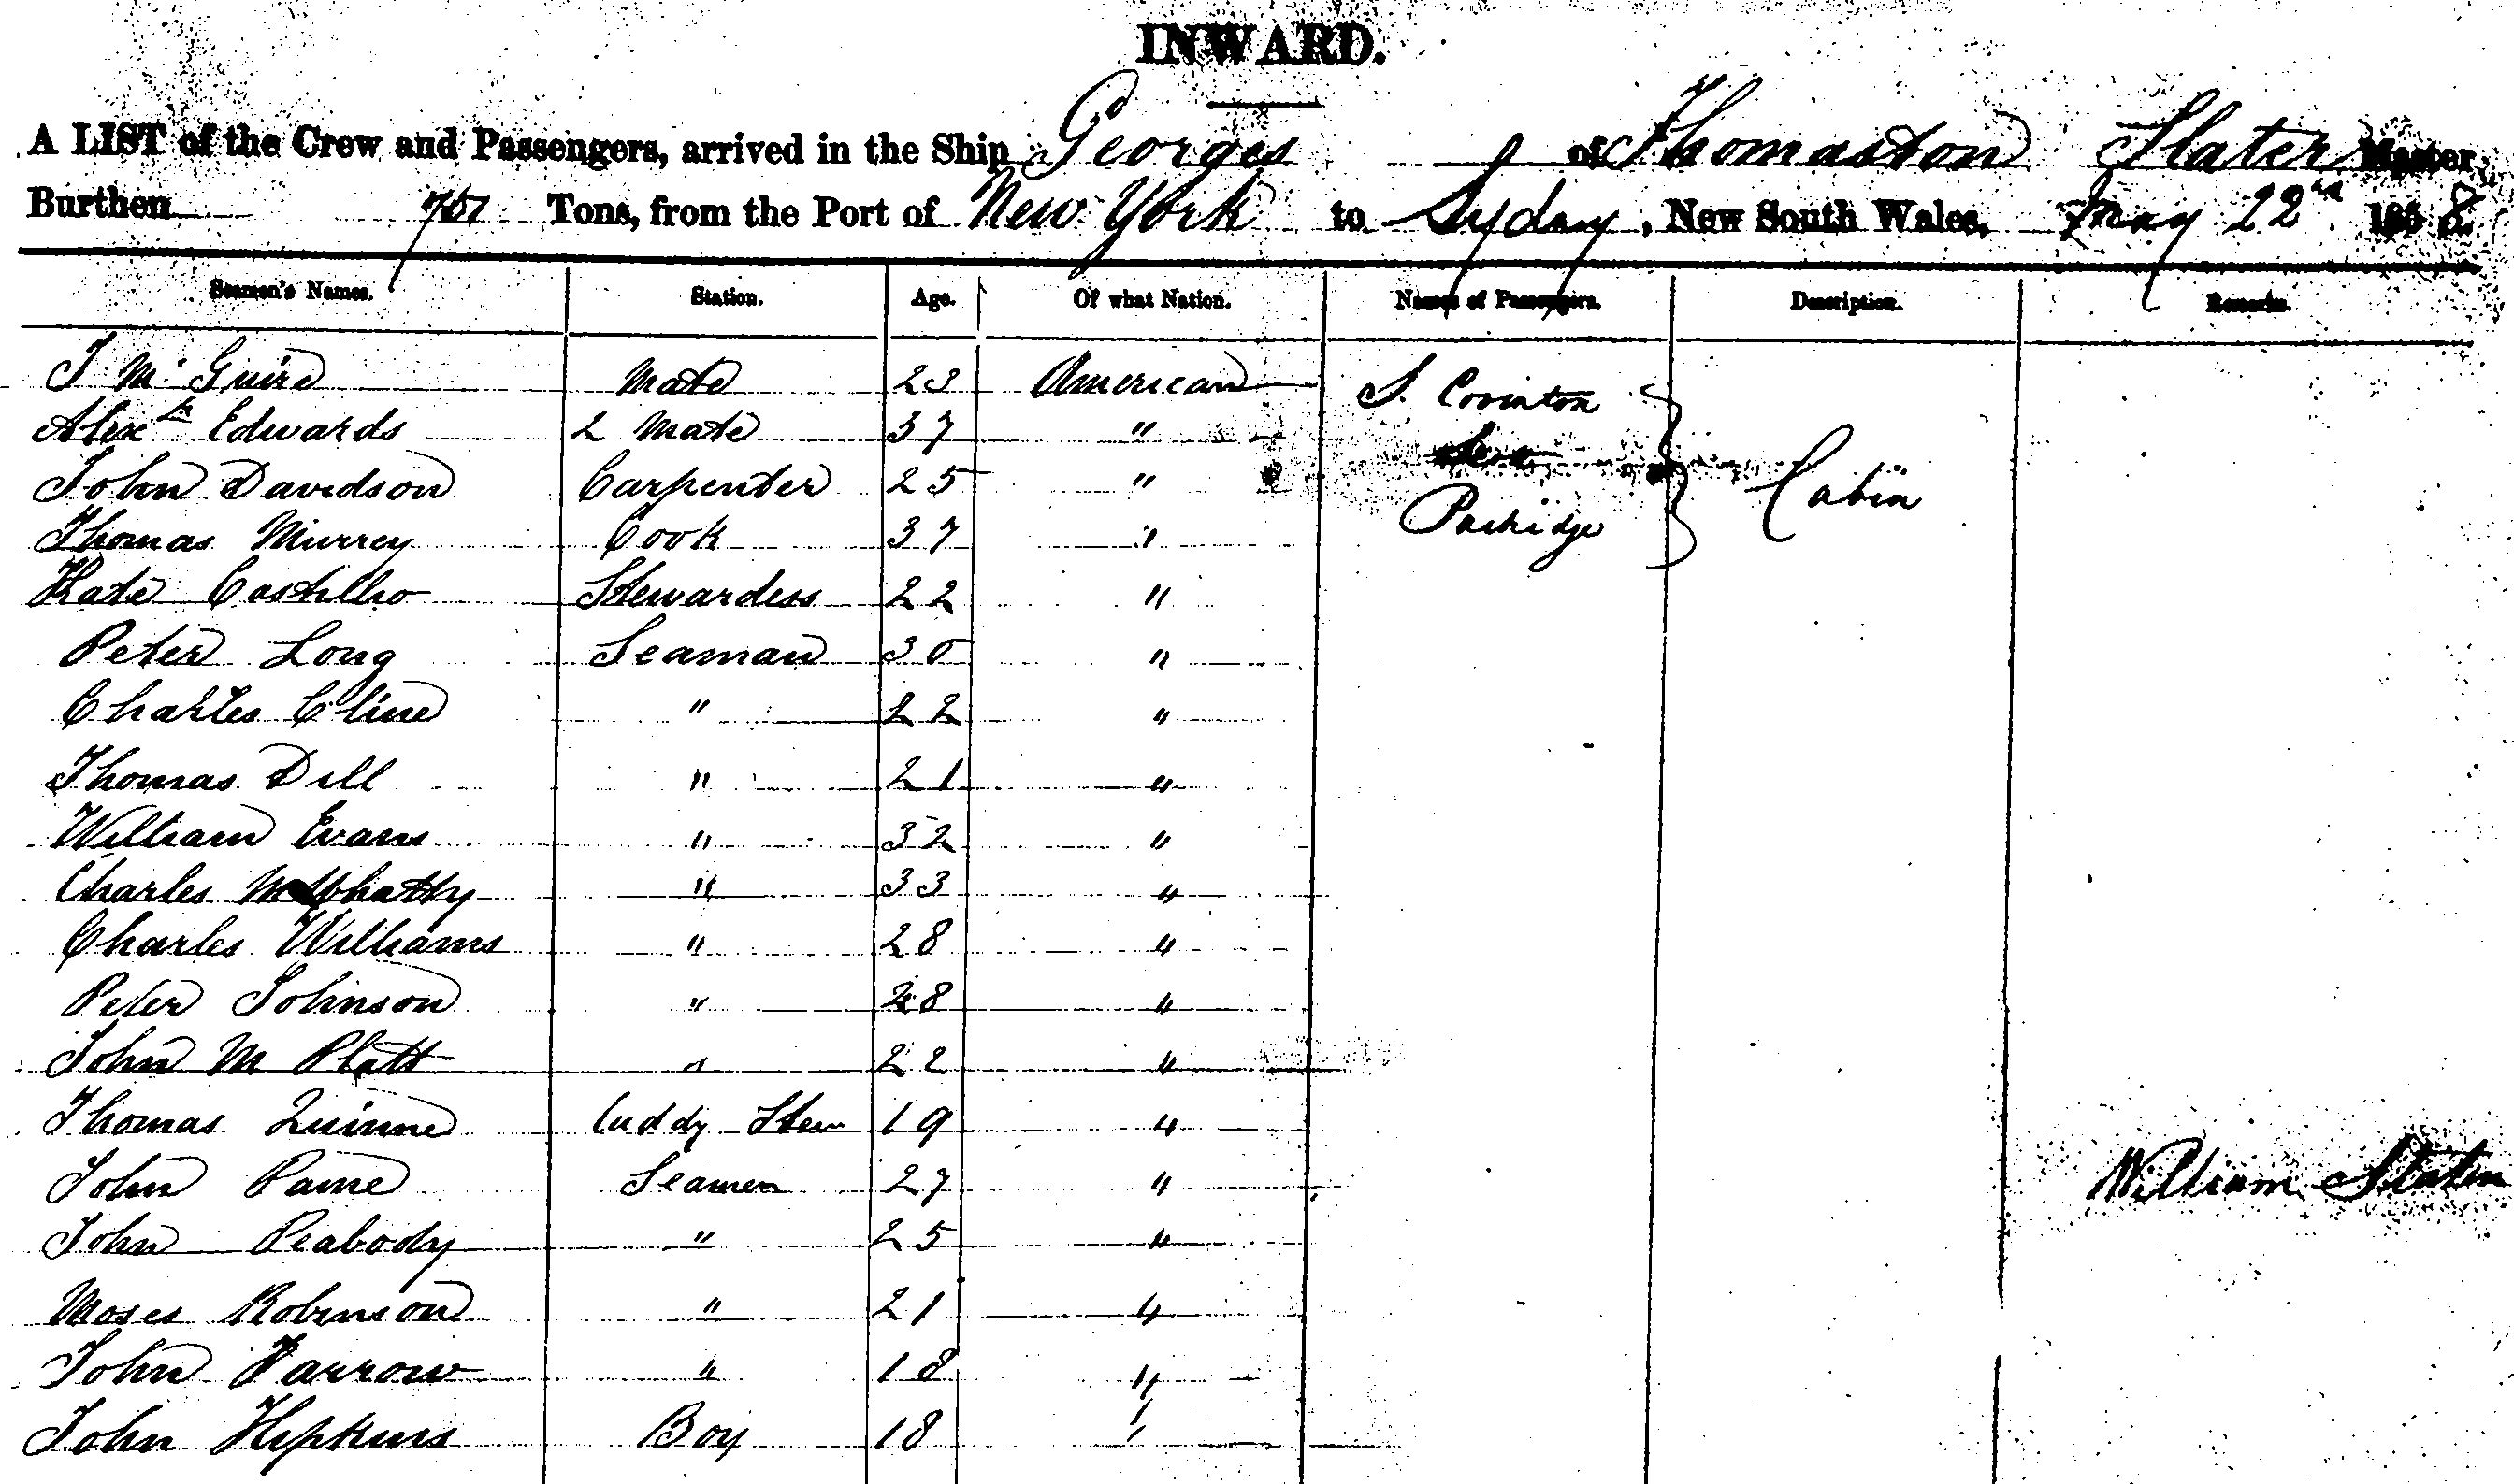 INWARD.
A LIST of the Crew and Passengers, arrived in the Ship Georges of Thomaston Slater Master
Burthen Tons, from the Port of New York to Sydney, New South Wales, May 22nd 1858
Seamen's Names. Station. Age. Of what Nation. Names of Passengers. Description. Remarks.
J Mc Guire Mate 23 American S. Covinton
Alexr Edwards 2 Mate 37 "
John Davidson Carpenter 25 " Cabin
Thomas Murrey Cook 37 "
Kate Costillio Stewardess 22 "
Peter Long Seaman 30 "
Charles Cline " 22 "
Thomas Dill " 21 "
William Evans " 32 "
Charles " 33 "
Charles Williams " 28 "
Peter Johnson " 28 "
John M Platt " 22 "
Thomas Quinne Cuddy Stew 19 "
John Paine Seamen 27 " William Slater
John Peabody " 25 "
Moses Robinson " 21 "
John Farrow " 18 "
John Hipkins Boy 18 "